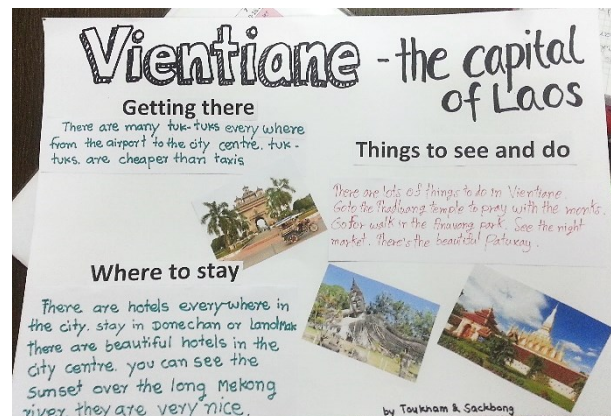 Vientiane - the capital
of Laos
Getting there
There are many tuk-tuks every where
from the airport to the city centre. tuk-
tuks. are cheaper than taxis
Things to see and do
There are lots of things to do in Vientiane.
Go to the Thatluang temple to pray with the monks.
Go for walk in the Anuvong park. See the night
market. There's the beautiful Patuxay.
Where to stay
There are hotels everywhere in
the city. stay in Donechan or LandMak
There are beautiful hotels in the
city centre. you can see the
Sunset over the long Mekong
river they are very nice.
by Toukham & Sackbong